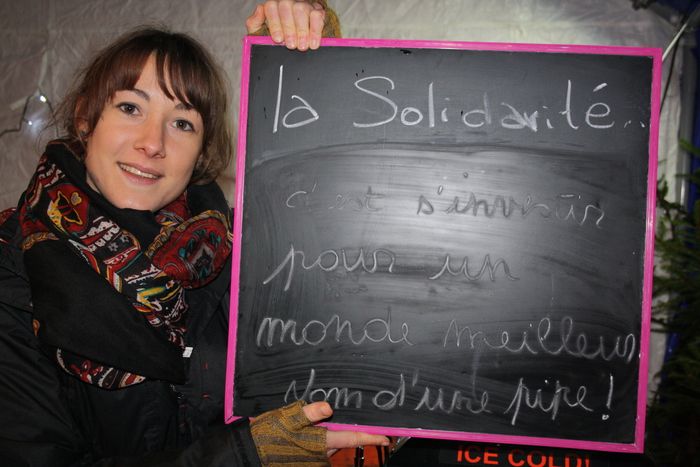 la Solidarité...
c'est s'investir
pour un
monde meilleur
Nom d'une pipe !
ICE COLD!